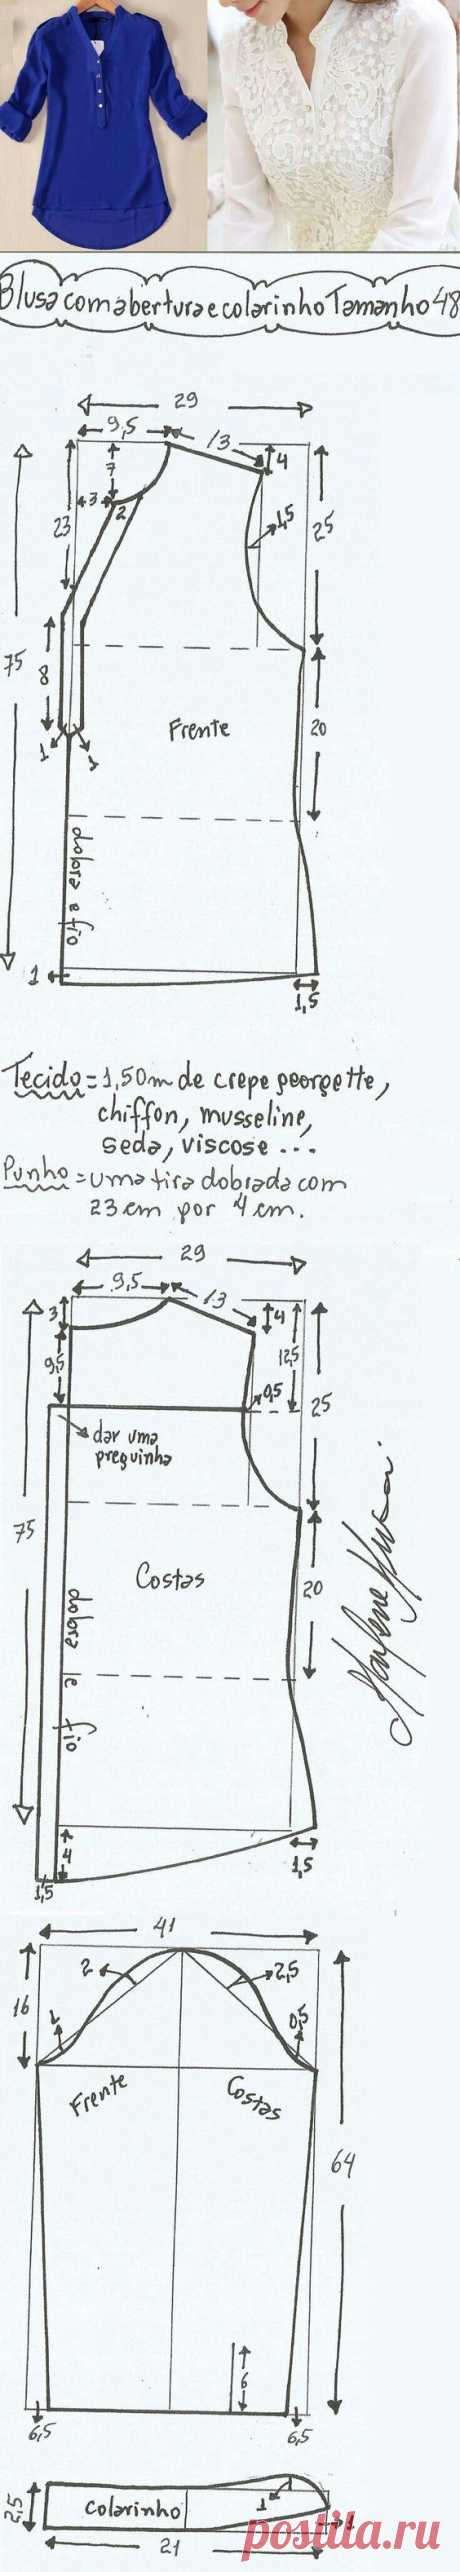 Blusa com abertura e colarinho Tamanho 48
29
9,5
13
4
7
3
2
23
1,5
25
75
8
1
1
Frente
20
dobra e fio
1
1,5
Tecido = 1,50m de crepe georgette,
chiffon, musseline,
seda, viscose ...
Punho = uma tira dobrada com
23 cm por 4 cm.
29
9,5
13
3
4
12,5
9,5
0,5
25
dar uma
preguinha
75
Costas
20
dobra e fio
4
1,5
1,5
41
2
2,5
16
1
0,5
Frente
Costas
64
6
6,5
6,5
2,5
Colarinho
1
1
21
postila.ru